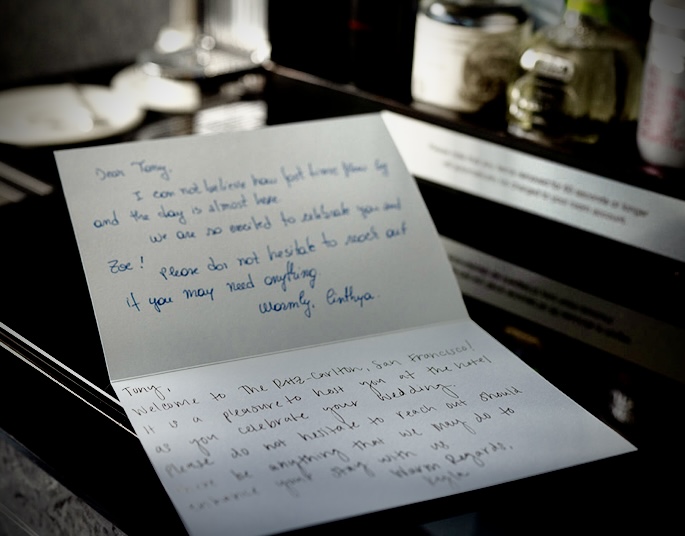 Dear Tony,
I can not believe how fast time flew by
and the day is almost here.
we are so excited to celebrate you and
Zoe! Please do not hesitate to reach out
if you may need anything
Warmly, Cinthya.
Tony,
Welcome to The Ritz-Carlton, San Francisco!
It is a pleasure to host you at the hotel
as you celebrate your wedding.
Please do not hesitate to reach out should
there be anything that we may do to
enhance your stay with us
Warm Regards,
Kyle